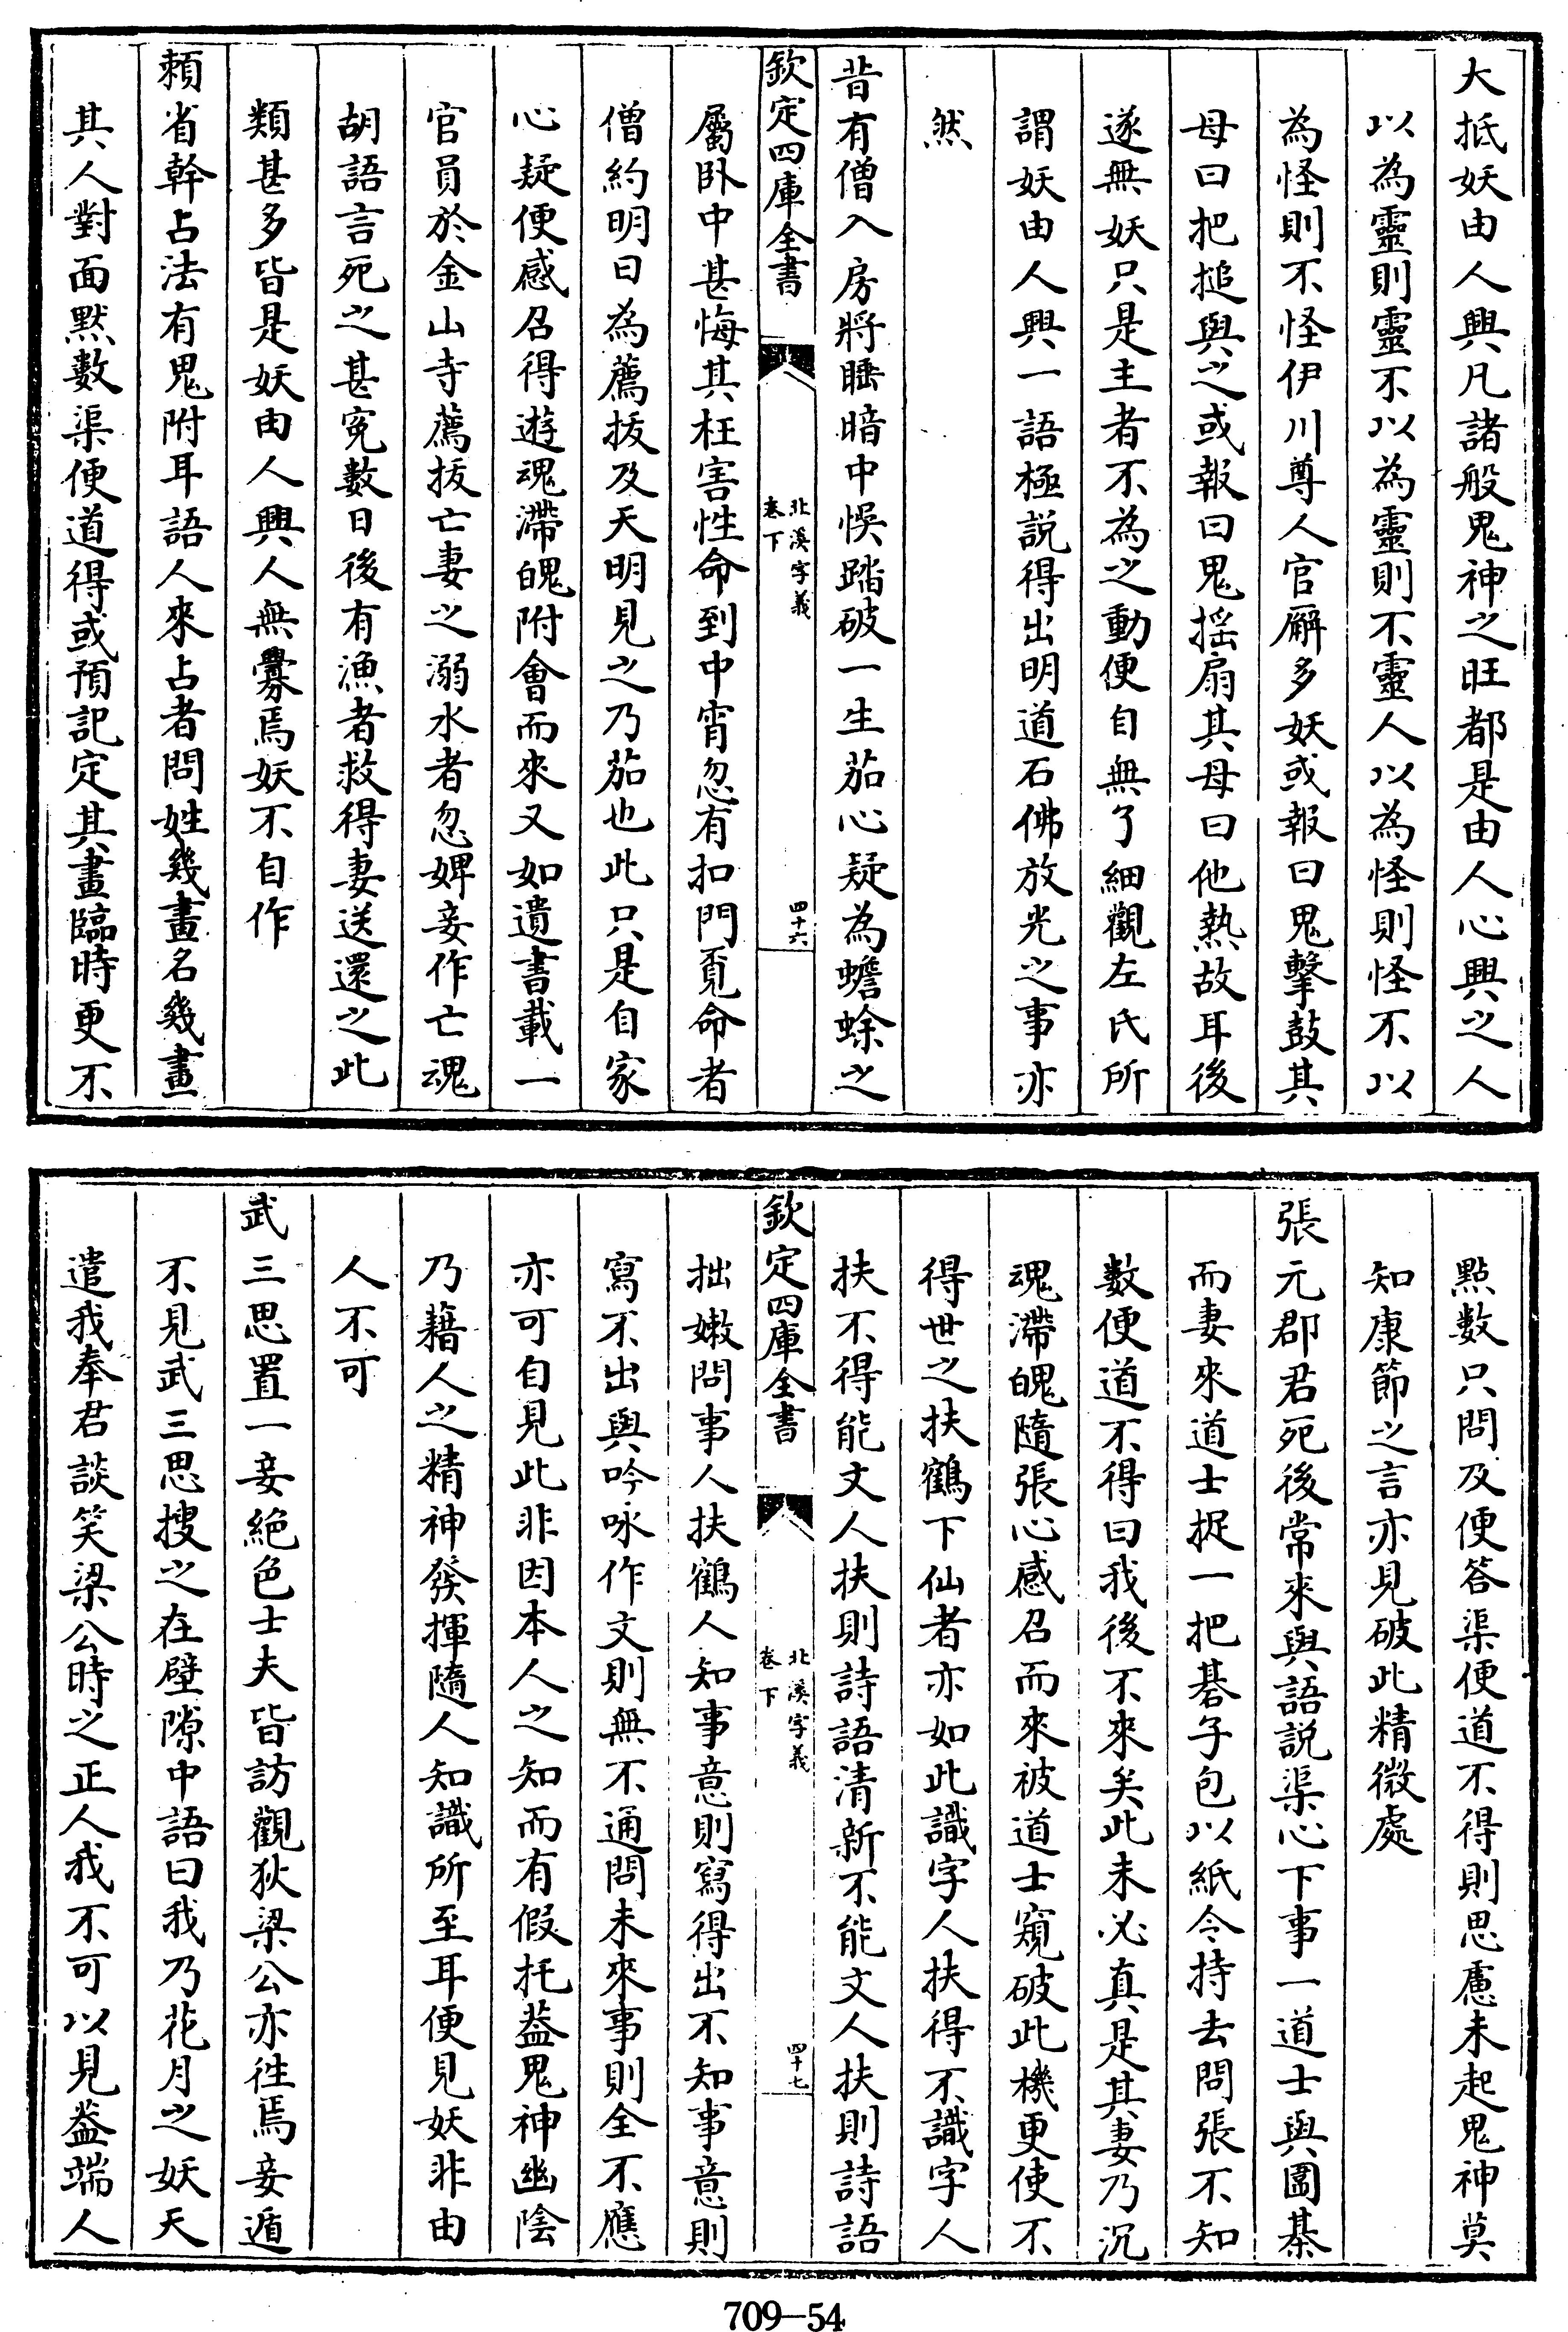 大抵妖由人興凡諸般鬼神之旺都是由人心興之人
以為靈則靈不以為靈則不靈人以為怪則怪不以
為怪則不怪伊川尊人官廨多妖或報曰鬼擊鼓其
母曰把搥與之或報曰鬼搖扇其母曰他熱故耳後
遂無妖只是主者不為之動便自無了細觀左氏所
謂妖由人興一語極說得出明道石佛放光之事亦
然
昔有僧入房將睡暗中悞踏破一生茄心疑為蟾蜍之
欽定四庫全書
北溪字義
卷下
四十六
屬臥中甚悔其枉害性命到中宵忽有扣門覓命者
僧約明日為薦拔及天明見之乃茄也此只是自家
心疑便感召得遊魂滯魄附會而來又如遺書載一
官員於金山寺薦拔亡妻之溺水者忽婢妾作亡魂
胡語言死之甚寃數日後有漁者救得妻送還之此
類甚多皆是妖由人興人無釁焉妖不自作
賴省幹占法有鬼附耳語人來占者問姓幾畫名幾畫
其人對面默數渠便道得或預記定其畫臨時更不
點數只問及便答渠便道不得則思慮未起鬼神莫
知康節之言亦見破此精微處
張元郡君死後常來與語說渠心下事一道士與圍棊
而妻來道士捉一把碁子包以紙令持去問張不知
數便道不得曰我後不來矣此未必真是其妻乃沉
魂滯魄隨張心感召而來被道士窺破此機更使不
得世之扶鶴下仙者亦如此識字人扶得不識字人
扶不得能文人扶則詩語清新不能文人扶則詩語
欽定四庫全書
北溪字義
卷下
四十七
拙嫩問事人扶鶴人知事意則寫得出不知事意則
寫不出與吟咏作文則無不通問未來事則全不應
亦可自見此非因本人之知而有假托葢鬼神幽陰
乃藉人之精神發揮隨人知識所至耳便見妖非由
人不可
武三思置一妾絕色士夫皆訪觀狄梁公亦徃焉妾遁
不見武三思搜之在壁隙中語曰我乃花月之妖天
遣我奉君談笑梁公時之正人我不可以見葢端人
709—54